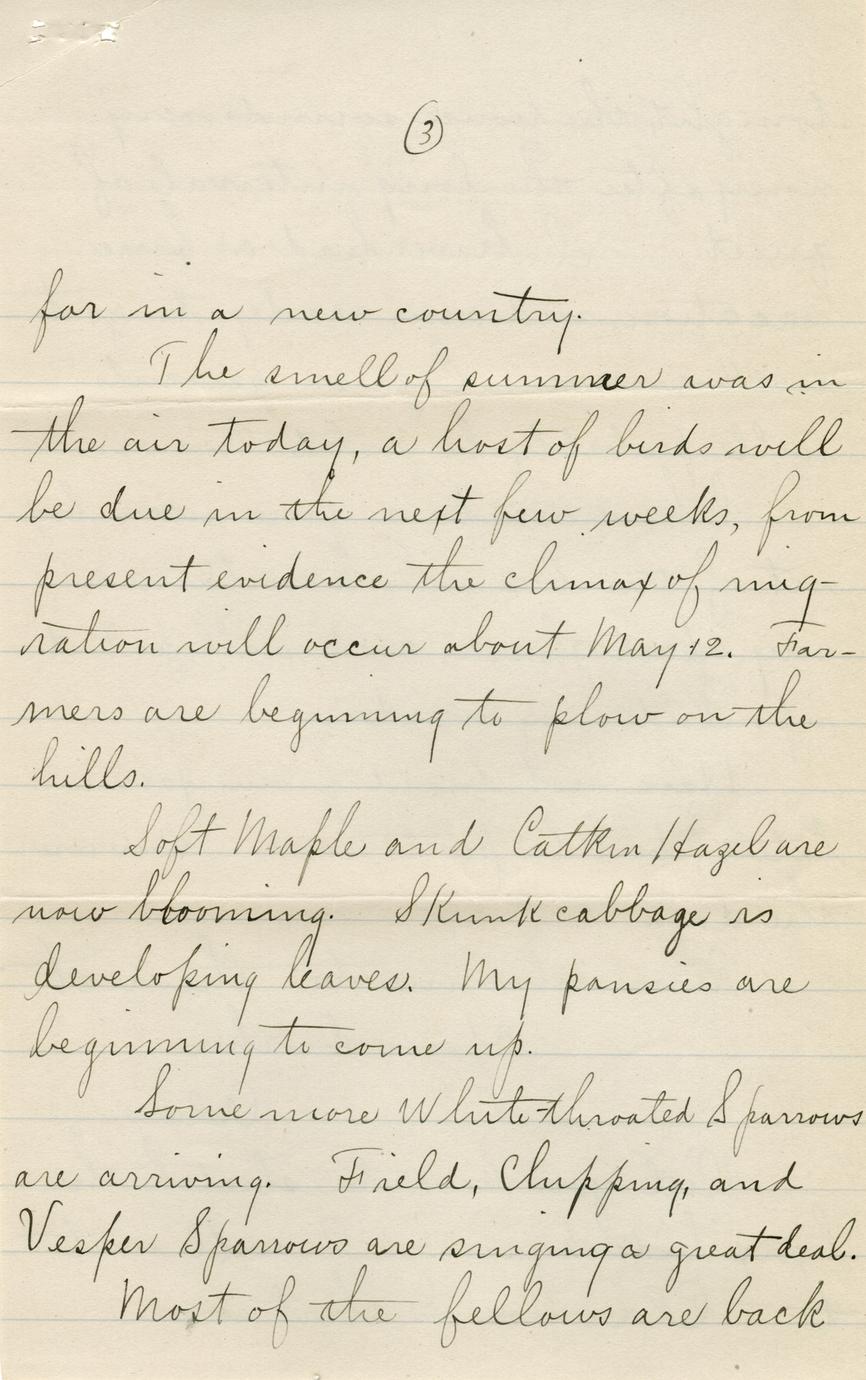 3
for in a new country.
The smell of summer was in
the air today, a host of birds will
be due in the next few weeks, from
present evidence the climax of mig-
ration will occur about May 12. Far-
mers are beginning to plow on the
hills.
Soft Maple and Catkin Hazel are
now blooming. Skunk cabbage is
developing leaves. My pansies are
beginning to come up.
Some more White-throated Sparrows
are arriving. Field, Chipping, and
Vesper Sparrows are singing a great deal.
Most of the fellows are back